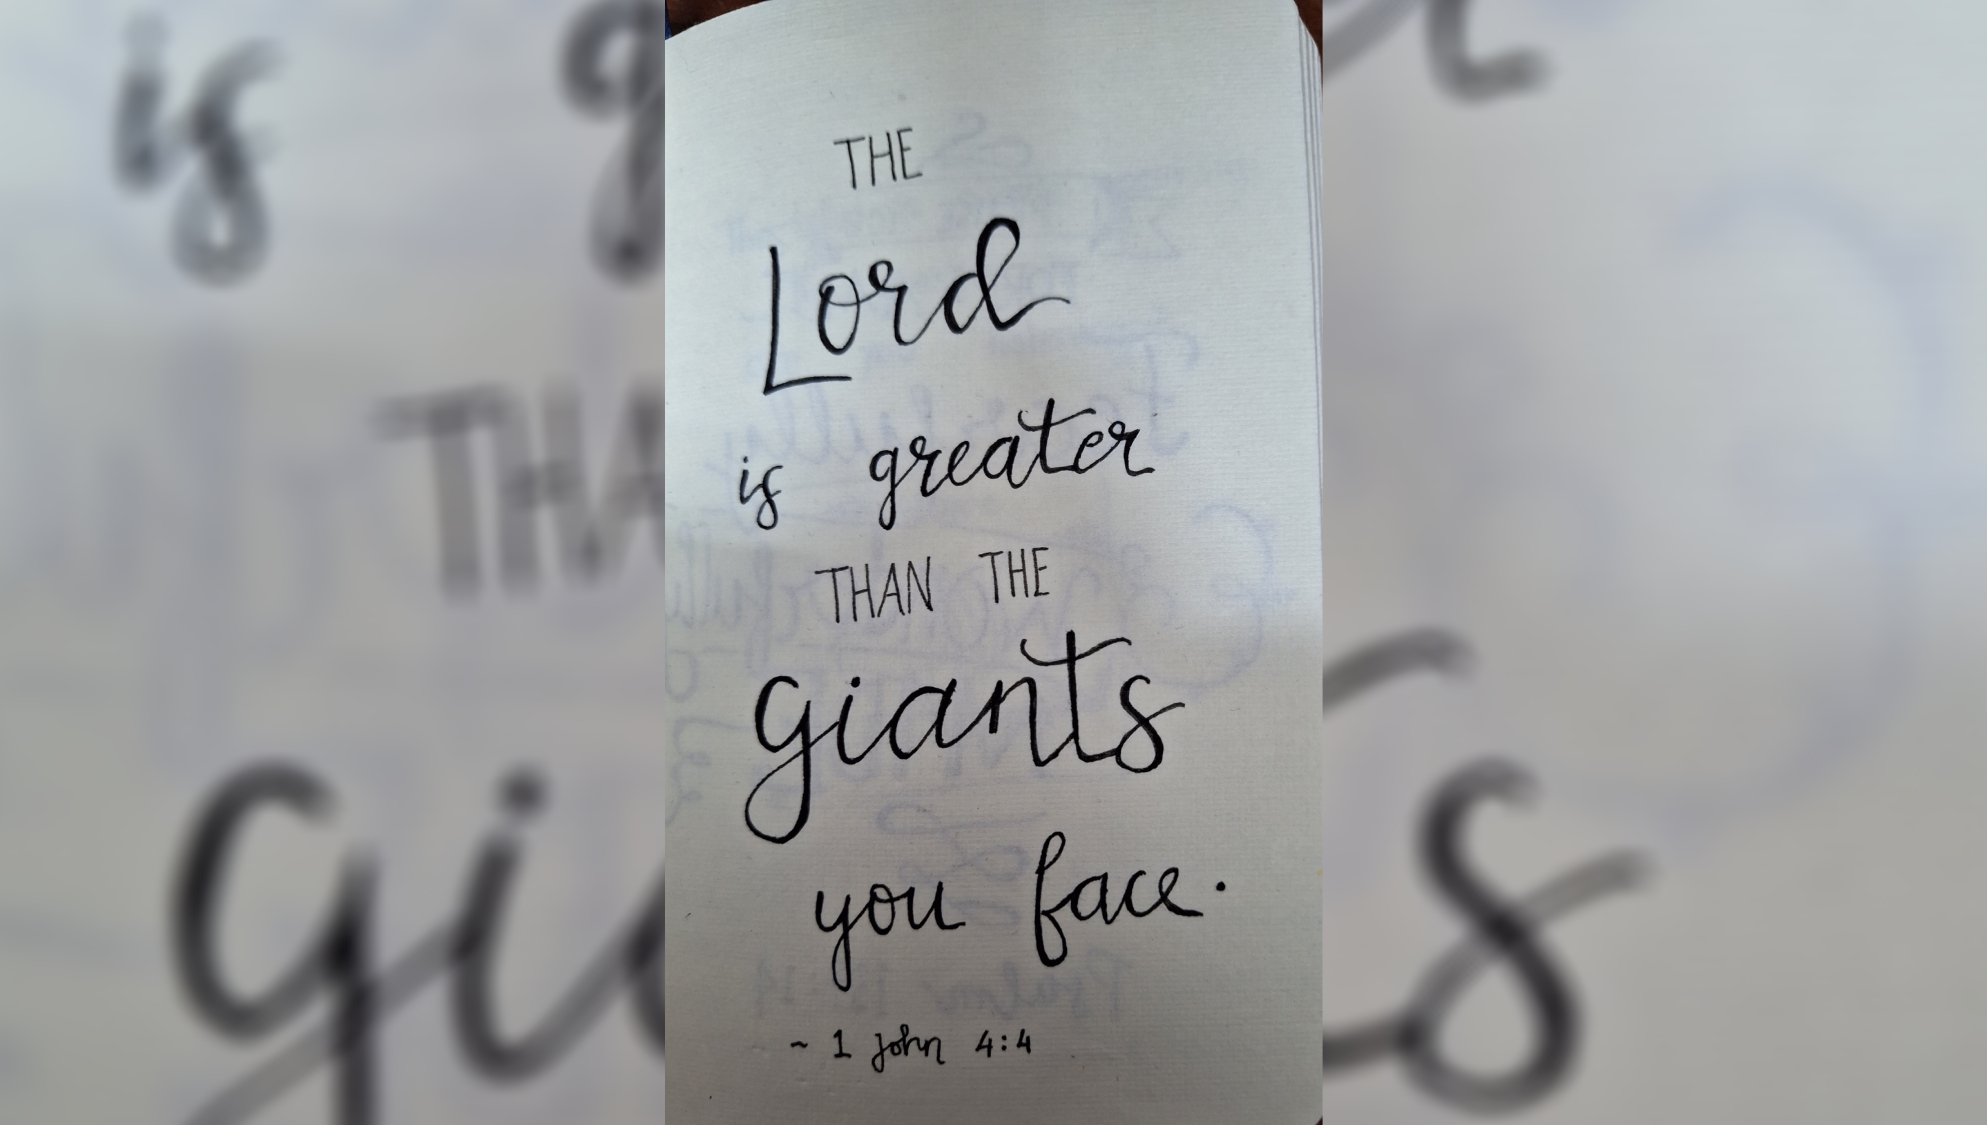 THE
Lord
is greater
THAN THE
giants
you face.
~ 1 John 4:4